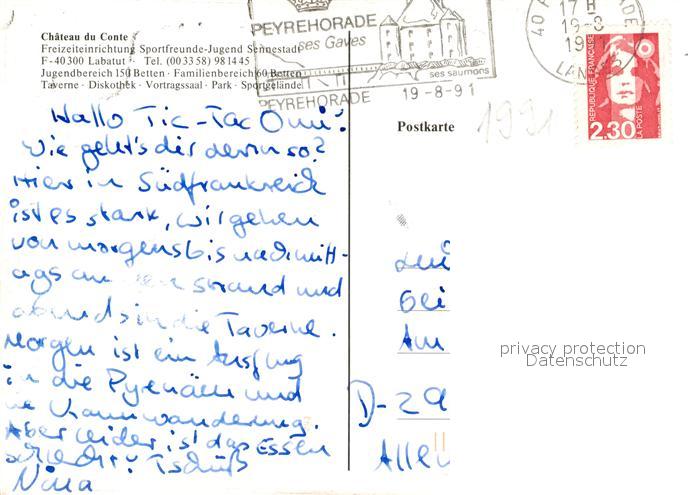 Château du Conte
Freizeiteinrichtung Sportfreunde-Jugend Sennestadt
F-40300 Labatut · Tel. (003358) 981445
Jugendbereich 150 Betten · Familienbereich 60 Betten
Taverne · Diskothek · Vortragssaal · Park · Sportgelände
PEYREHORADE
ses Gaves
ses saumons
PEYREHORADE
19-8-91
17 H
19-8
19
LANDES
40
RÉPUBLIQUE FRANÇAISE
2,30
LA POSTE
Postkarte
1991
Hallo Tic-Tac Omi!
Wie geht's dir denn so?
Hier in Südfrankreich
ist es stark, wir gehen
von morgens bis nachmitt-
ags an den Strand und
abends in die Taverne.
Morgen ist ein Ausflug
in die Pyrenäen und
ne Kanuwanderung.
Aber leider ist das Essen
schlecht! Tschüß
Nina
Am
D-29
privacy protection
Datenschutz